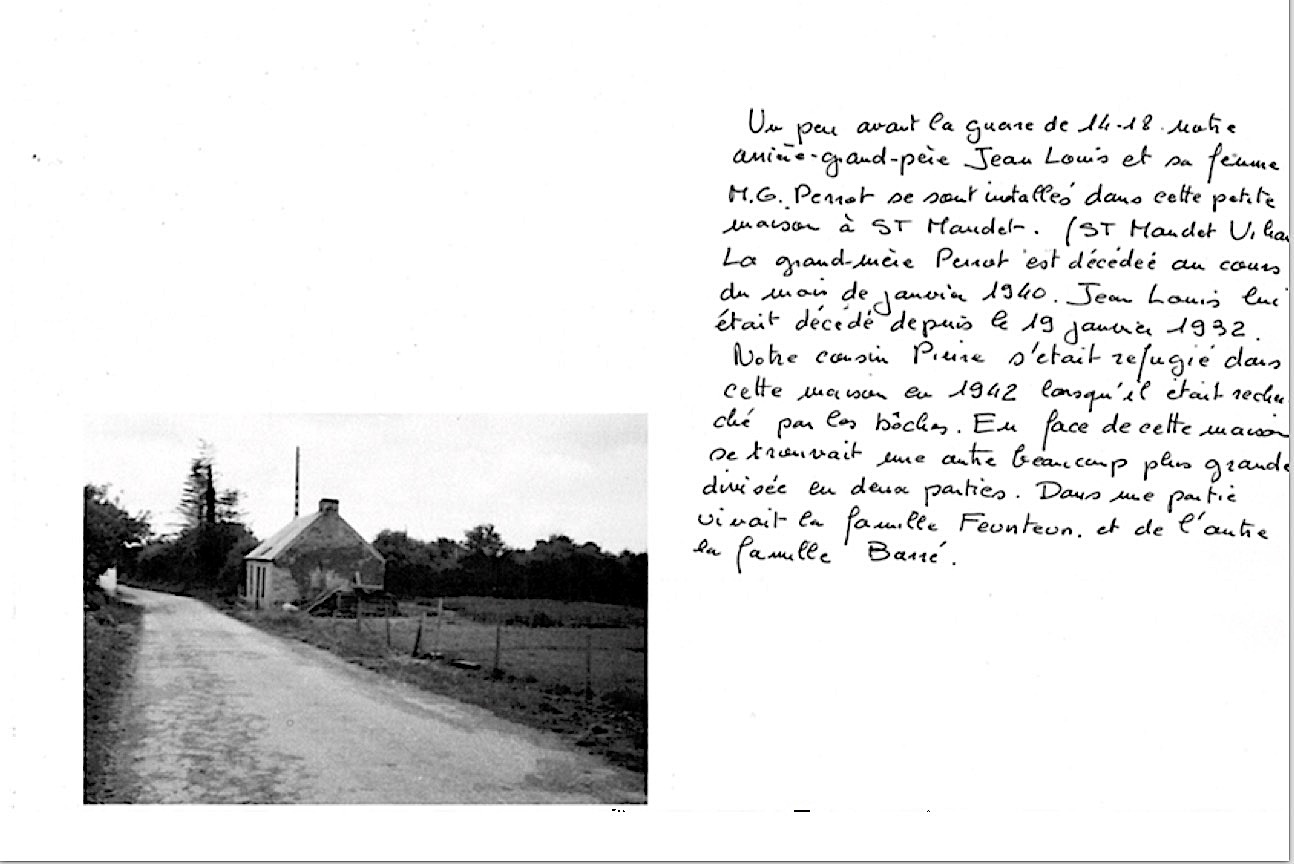 Un peu avant la guerre de 14-18 notre
arrière-grand-père Jean Louis et sa femme
M.G. Perrot se sont installés dans cette petite
maison à ST Maudet. (ST Maudet
La grand-mère Perrot est décédeé au cours
du mois de janvier 1940. Jean Louis lui
était décédé depuis le 19 janvier 1932.
Notre cousin Pierre s'était refugié dans
cette maison en 1942 lorsqu'il était recher
ché par les bôches. En face de cette maison
se trouvait une autre beaucoup plus grande
divisée en deux parties. Dans une partie
vivait la famille Feunteun. et de l'autre
la famille Barré.